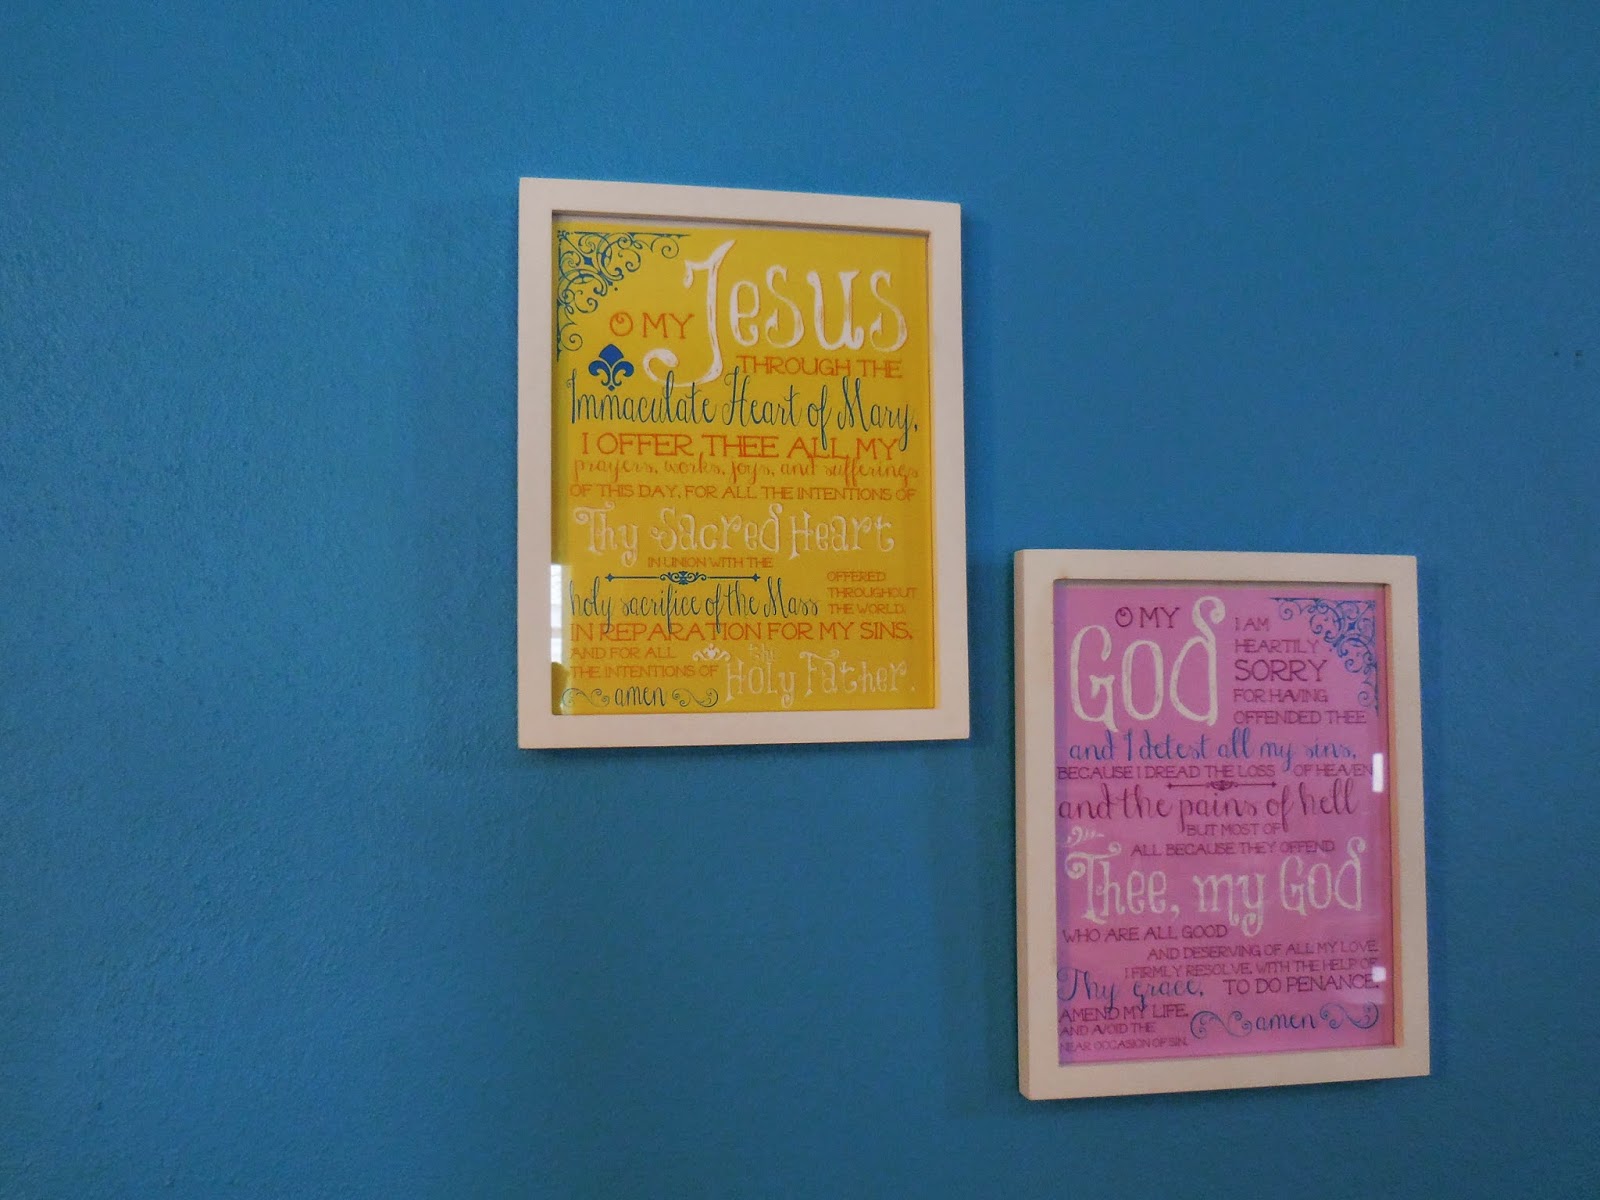 O MY Jesus
THROUGH THE
Immaculate Heart of Mary,
I OFFER THEE ALL MY
prayers, works, joys, and sufferings
OF THIS DAY, FOR ALL THE INTENTIONS OF
Thy Sacred Heart
IN UNION WITH THE
holy sacrifice of the Mass
OFFERED
THROUGHOUT
THE WORLD,
IN REPARATION FOR MY SINS,
AND FOR ALL
THE INTENTIONS OF
the
Holy Father.
amen
O MY
God
I AM
HEARTILY
SORRY
FOR HAVING
OFFENDED THEE
and I detest all my sins,
BECAUSE I DREAD THE LOSS OF HEAVEN
and the pains of hell
BUT MOST OF
ALL BECAUSE THEY OFFEND
Thee, my God
WHO ARE ALL GOOD
AND DESERVING OF ALL MY LOVE
I FIRMLY RESOLVE, WITH THE HELP OF
Thy grace, TO DO PENANCE,
AMEND MY LIFE,
AND AVOID THE
NEAR OCCASION OF SIN.
amen